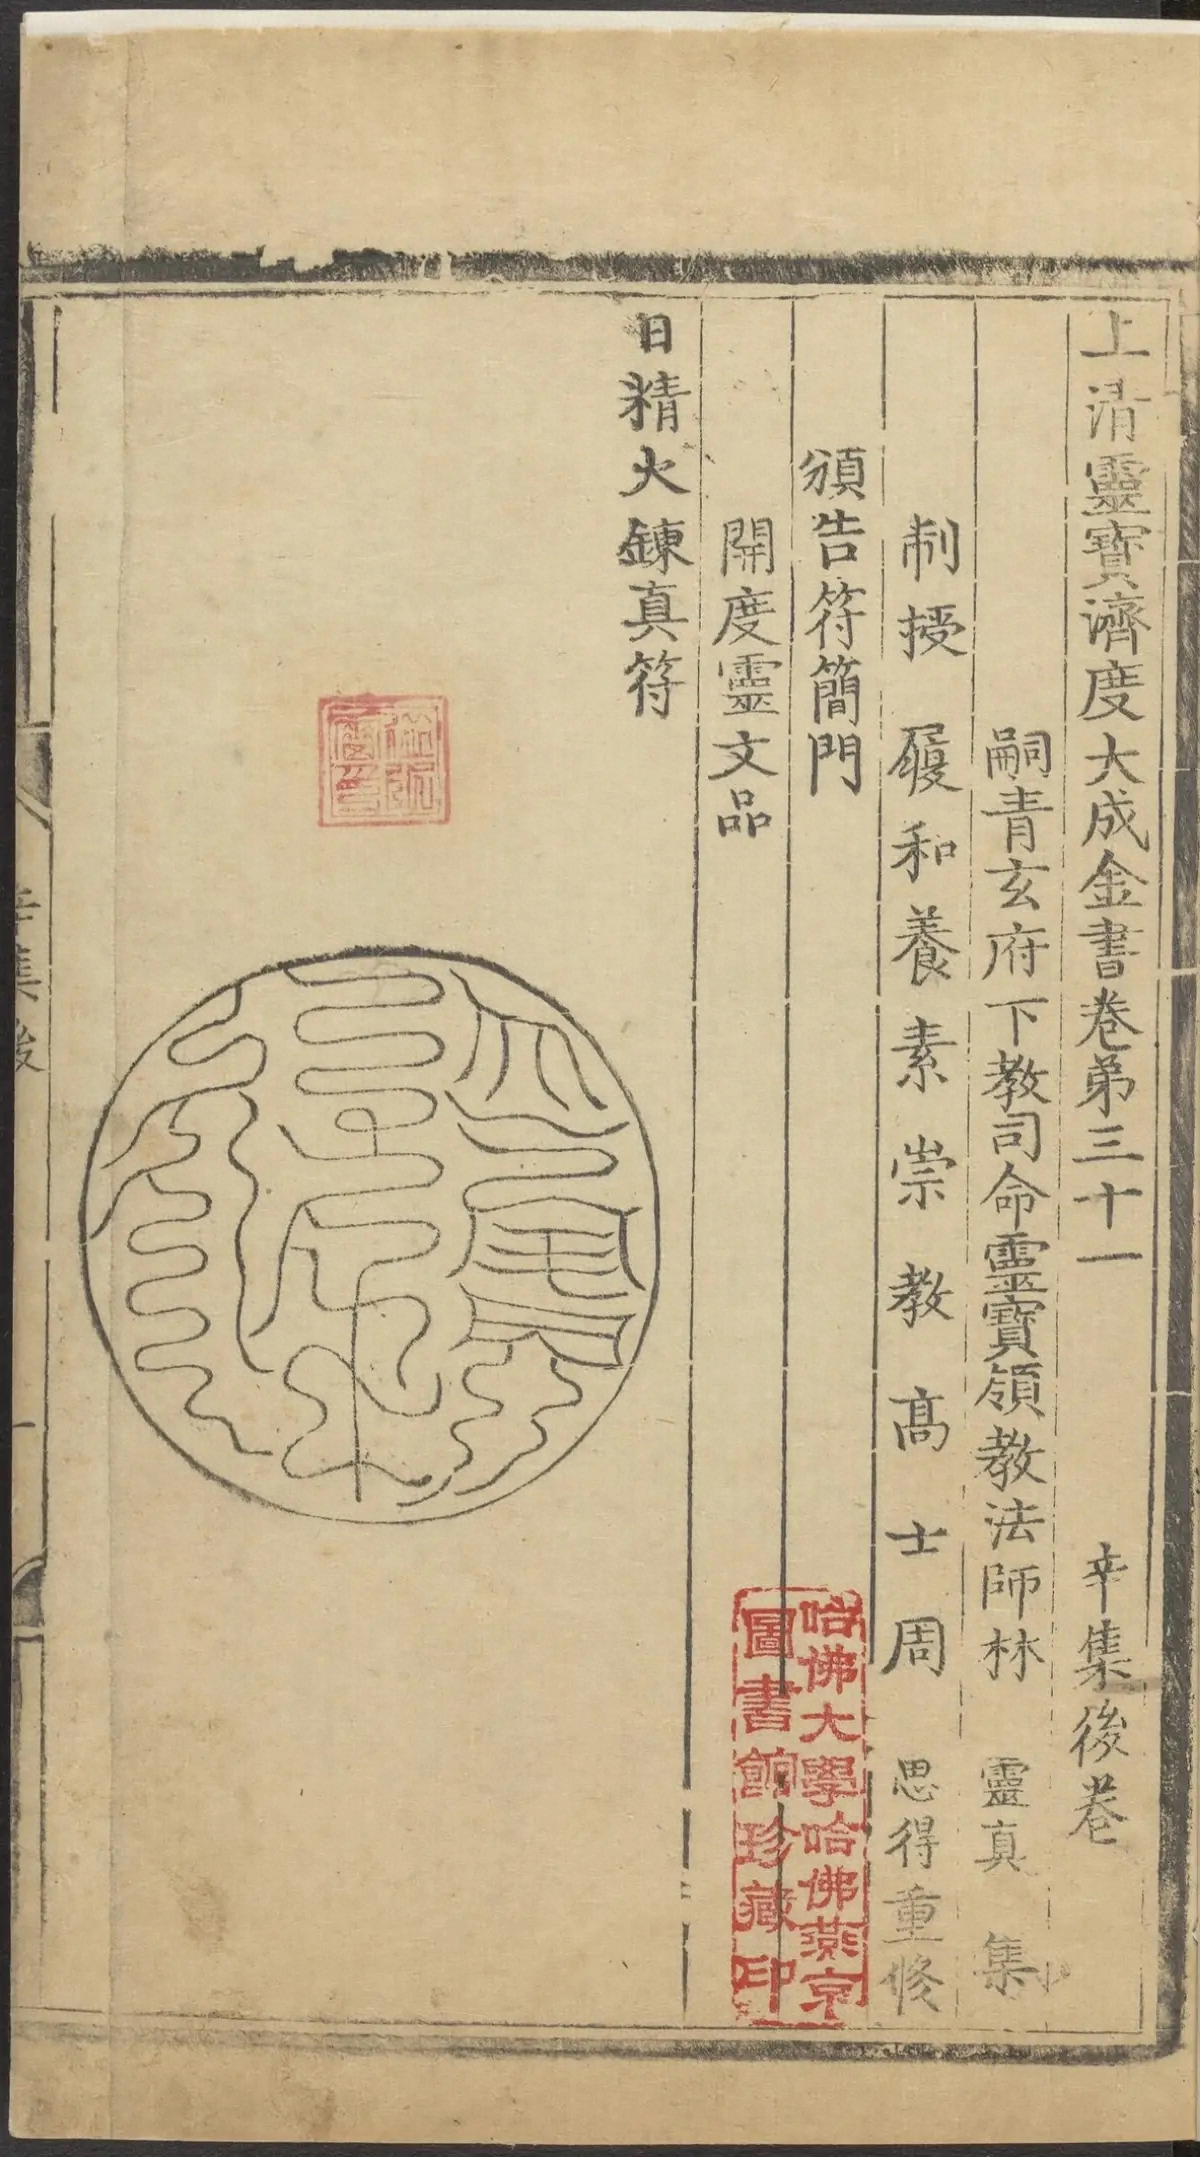 上清靈寶濟度大成金書卷第三十一　辛集後卷
嗣青玄府下教司命靈寶領教法師林　靈真　集
制授履和養素崇教高士周　思得重修
頒告符簡門
開度靈文品
日精火鍊真符
哈佛大學哈佛燕京
圖書館珍藏印
辛集後
一